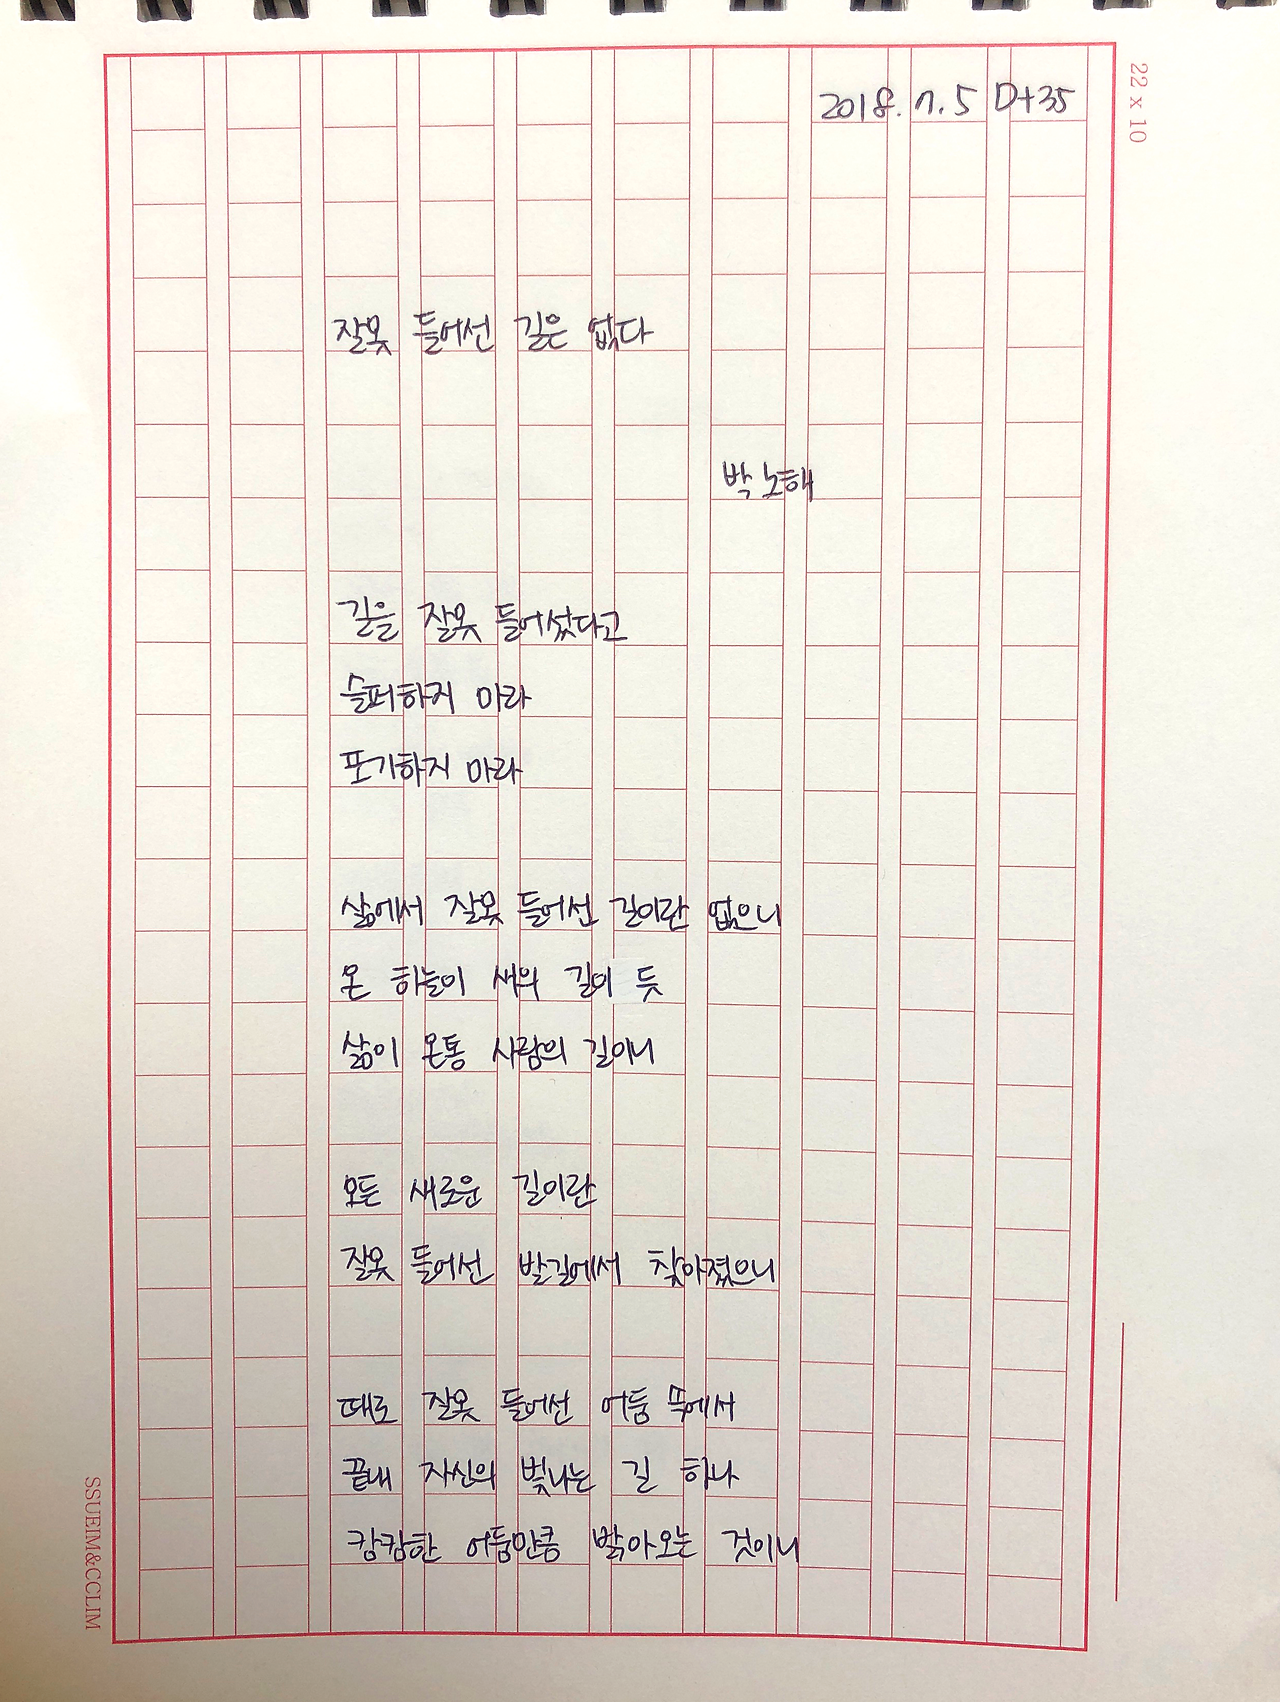 2018. 7. 5 D+35
22 x 10
잘못 들어선 길은 없다
박노해
길을 잘못 들어섰다고
슬퍼하지 마라
포기하지 마라
삶에서 잘못 들어선 길이란 없으니
온 하늘이 새의 길이 듯
삶이 온통 사람의 길이니
모든 새로운 길이란
잘못 들어선 발길에서 찾아졌으니
때로 잘못 들어선 어둠 뜩에서
끝내 자신의 빛나는 길 하나
캄캄한 어둠만큼 밝아오는 것이니
SSUEIM&CCLIM